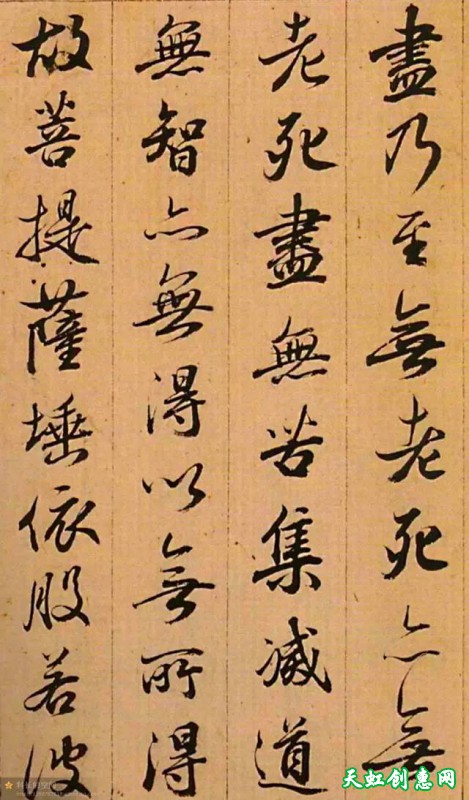 盡乃至無老死亦無
老死盡無苦集滅道
無智亦無得以無所得
故菩提薩埵依般若波
天虹创惠网